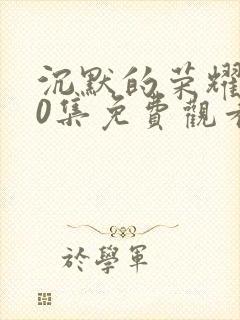 沉默的荣耀
0集免費觀看
於學軍